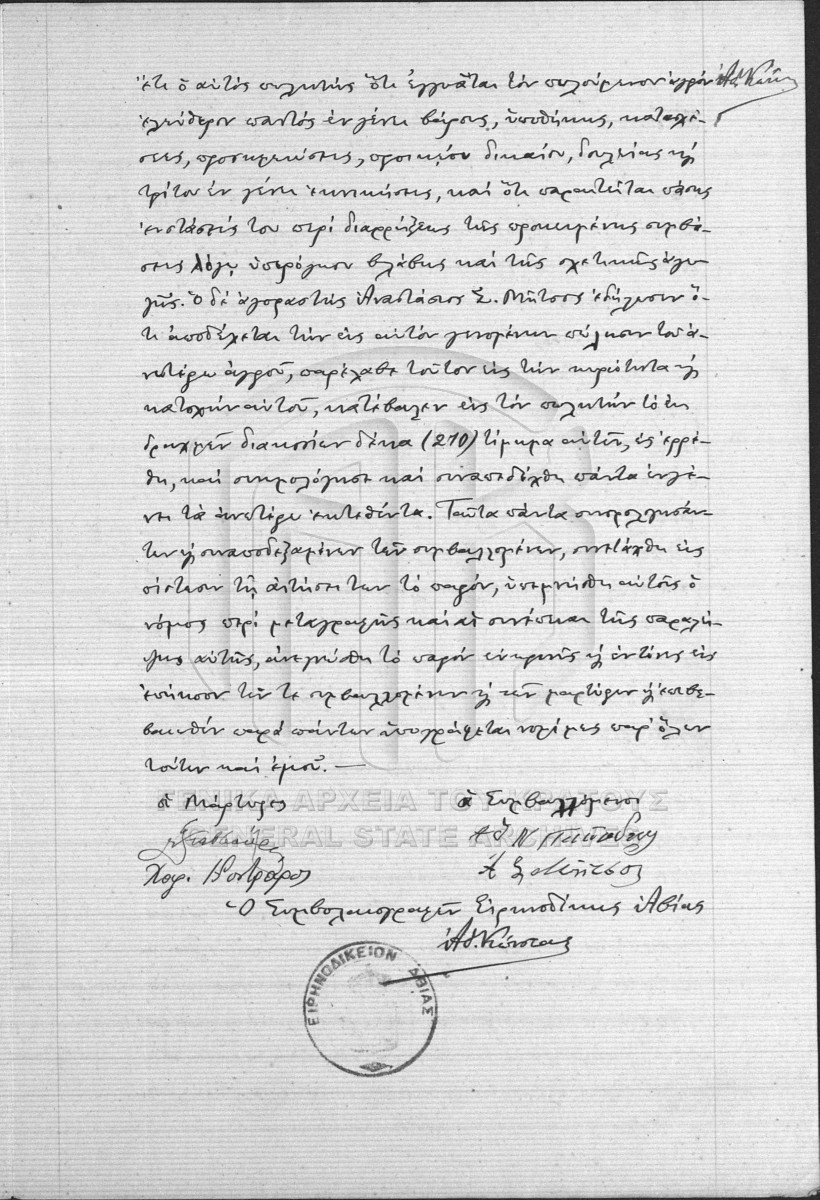 ἔτι ὁ αὐτός πωλητής ὅτι ἐγγυᾶται τόν πωλούμενον ἀγρόν Ἀθ. Κώνστας
ἐλεύθερον παντός ἐν γένει βάρους, ὑποθήκης, κατασχέ-
σεως, προσημειώσεως, προικῴου δικαίου, δουλείας καί
τρίτου ἐν γένει ἐκνικήσεως, καί ὅτι παραιτεῖται πάσης
ἐνστάσεώς του περί διαρρήξεως τῆς προκειμένης συμβά-
σεως λόγῳ ὑπερόγκου βλάβης καί τῆς σχετικῆς ἀγω-
γῆς. Ὁ δέ ἀγοραστής Ἀναστάσιος Σ. Μῆτσος ἐδήλωσεν ὅ-
τι ἀποδέχεται τήν εἰς αὐτόν γενομένην πώλησιν τοῦ ἀ-
νωτέρω ἀγροῦ, παρέλαβε τοῦτον εἰς τήν κυριότητα καί
κατοχήν αὐτοῦ, κατέβαλεν εἰς τόν πωλητήν τό ἐκ
δραχμῶν διακοσίων δέκα (210) τίμημα αὐτοῦ, ὡς ἐρρέ-
θη, καί συνωμολόγησε καί συναπεδέχθη πάντα ἐν γέ-
νει τά ἀνωτέρω ἐκτεθέντα. Ταῦτα πάντα συνομολογησάν-
των καί συναποδεξαμένων τῶν συμβαλλομένων, συνετάχθη εἰς
πίστωσιν τῇ αἰτήσει των τό παρόν, ὑπεμνήσθη αὐτοῖς ὁ
νόμος περί μεταγραφῆς καί αἱ συνέπειαι τῆς παραλεί-
ψεως αὐτῆς, ἀνεγνώσθη τό παρόν εὐκρινῶς καί ἐντόνως εἰς
ἐπήκοον τῶν τε συμβαλλομένων καί τῶν μαρτύρων καί ἐπιβε-
βαιωθέν παρά πάντων ὑπογράφεται νομίμως παρ' ὅλων
τούτων καί ἐμοῦ. —
οἱ Μάρτυρες οἱ Συμβαλλόμενοι
Χαρ.
Α Σ Μῆτσος
Ὁ Συμβολαιογραφῶν Εἰρηνοδίκης Ἀβίας
Ἀθ. Κώνστας
ΕΙΡΗΝΟΔΙΚΕΙΟΝ ΑΒΙΑΣ
ΓΕΝΙΚΑ ΑΡΧΕΙΑ ΤΟΥ ΚΡΑΤΟΥΣ
GENERAL STATE ARCHIVES